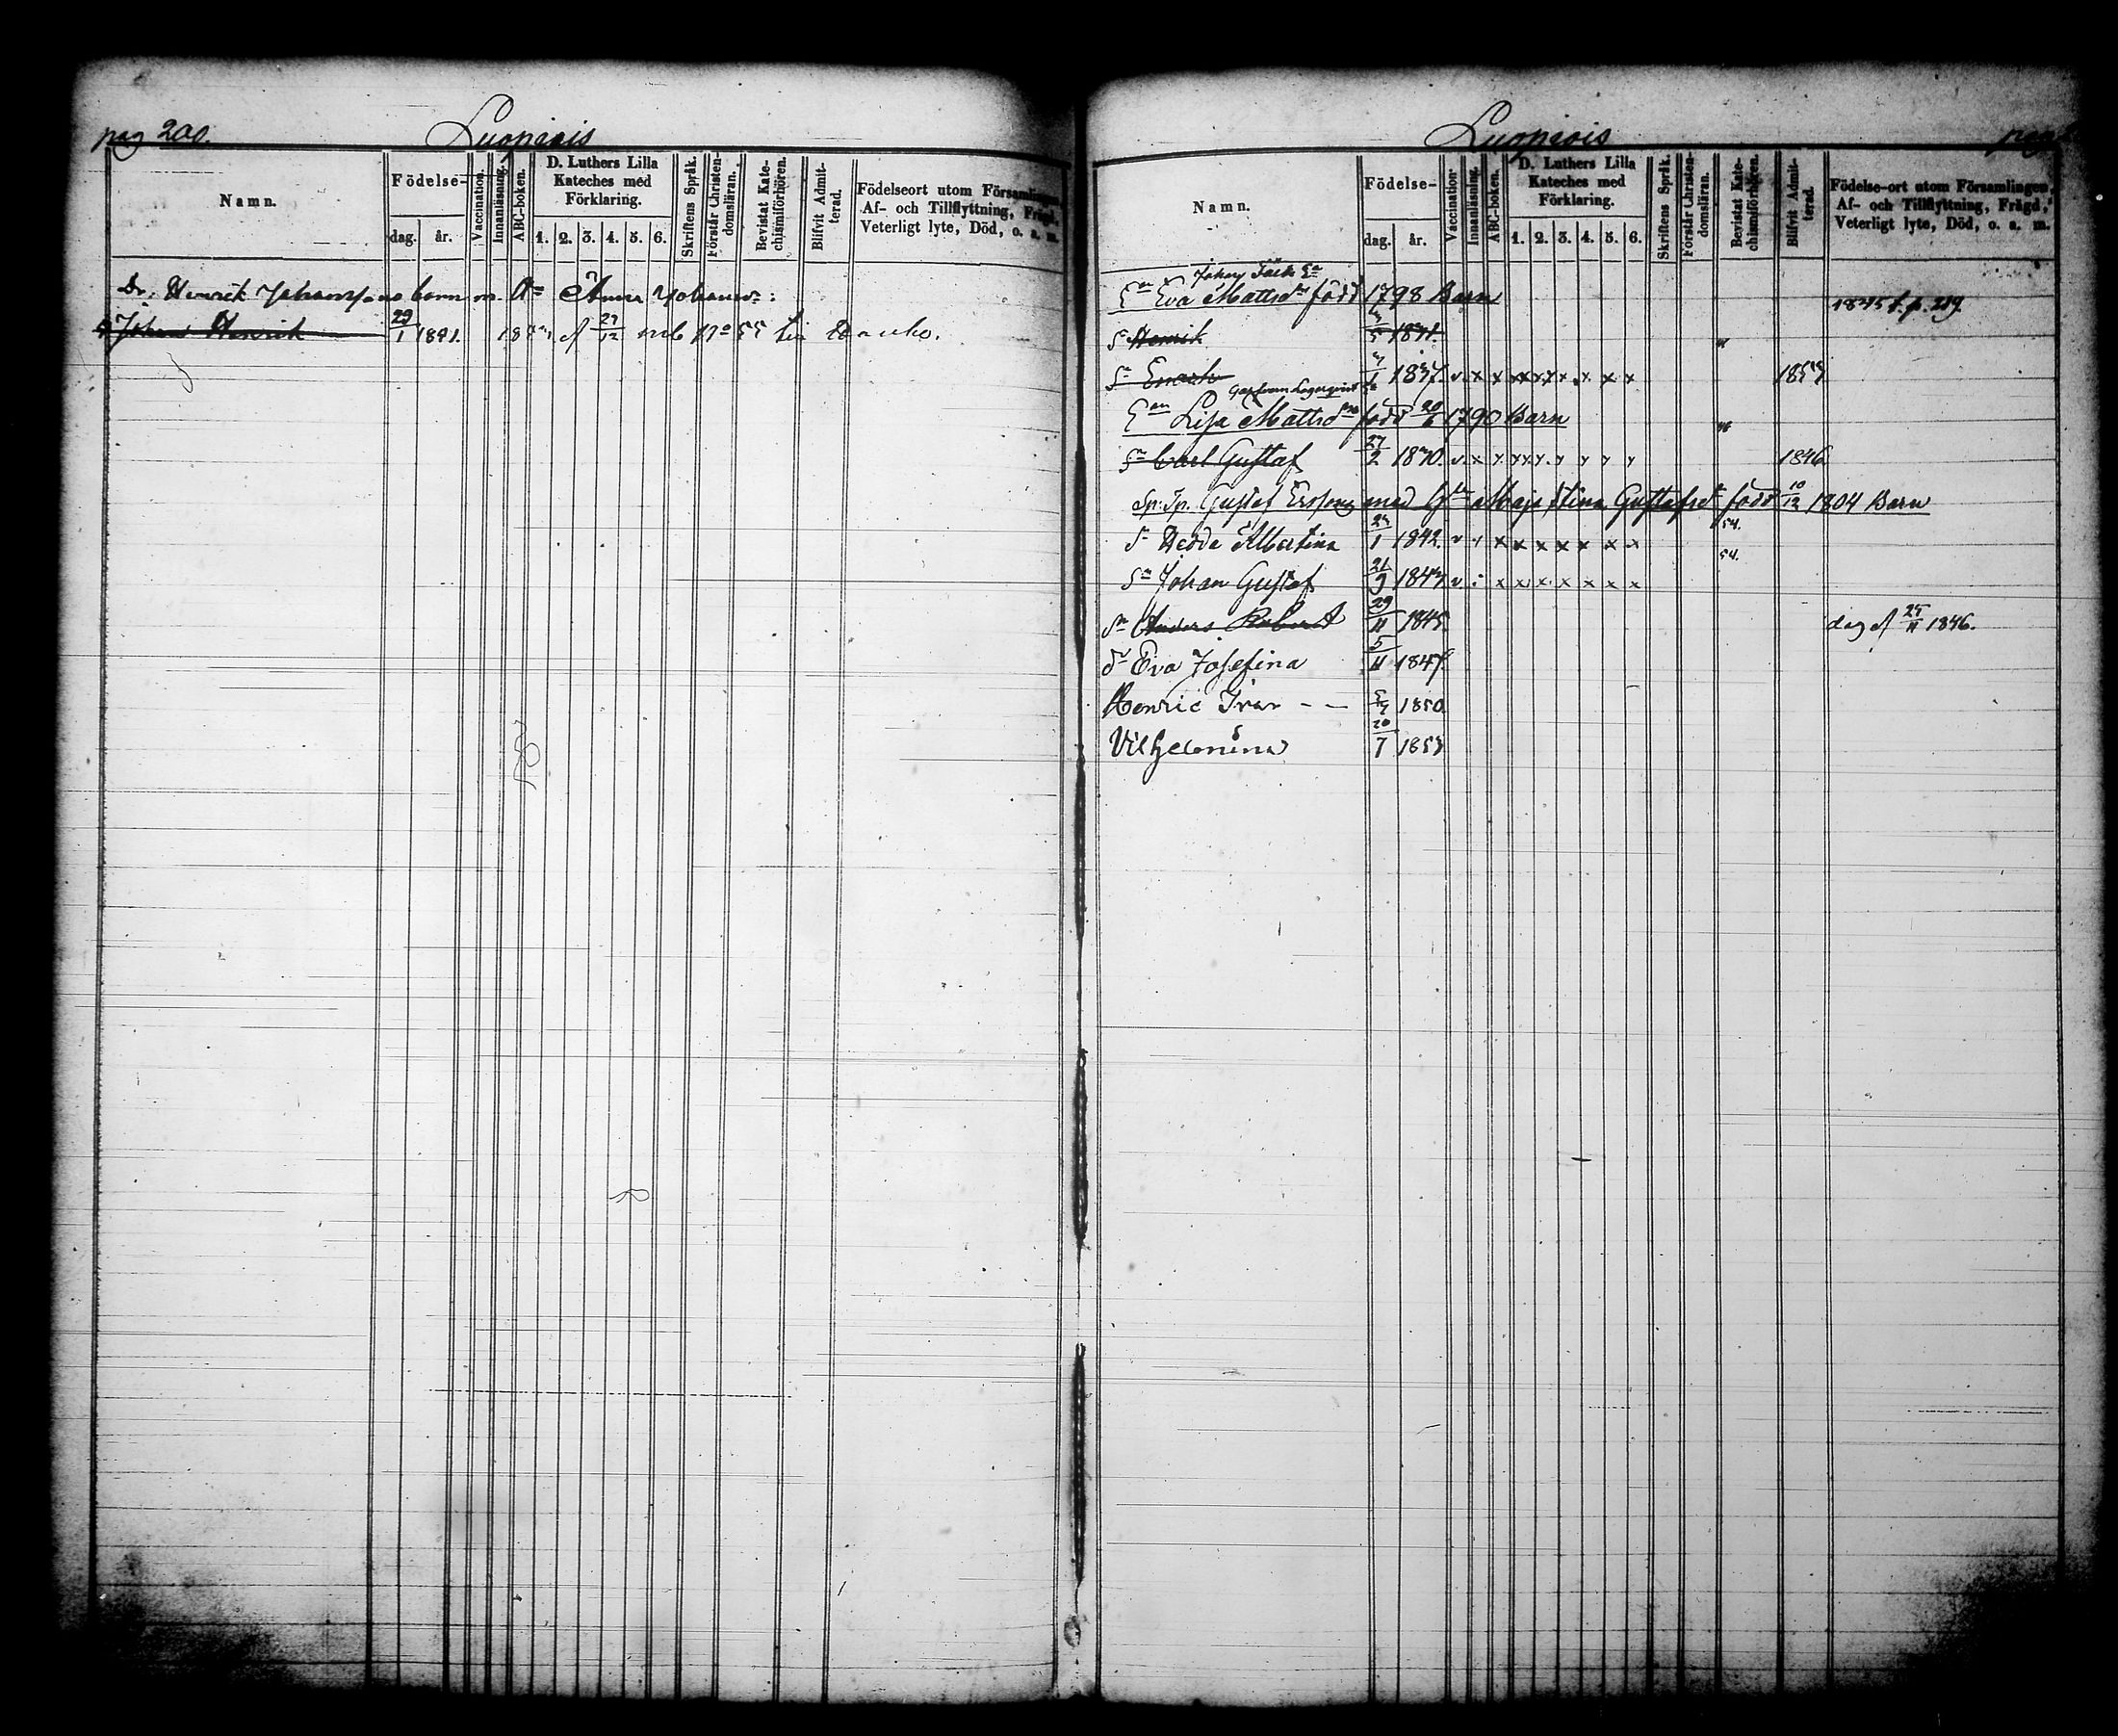 pag 200.
Luopiois
Namn.
Födelse-
dag. år.
Vaccination.
Innanläsning.
ABC-boken.
D. Luthers Lilla
Kateches med
Förklaring.
1. 2. 3. 4. 5. 6.
Skriftens Språk.
Förstår Christen-
domsläran.
Bevistat Kate-
chismiförhören.
Blifvit Admit-
terad.
Födelseort utom Församlingen,
Af- och Tillflyttning, Frägd,
Veterligt lyte, Död, o. a. m.
Dr. Henrik Johanssons barn m. Anna Johansd:
Johan Henrik 29/1 1841.
Luopiois
pag
Namn.
Födelse-
dag. år.
Vaccination
Innanläsning.
ABC-boken.
D. Luthers Lilla
Kateches med
Förklaring.
1. 2. 3. 4. 5. 6.
Skriftens Språk.
Förstår Christen-
domsläran.
Bevistat Kate-
chismiförhören.
Blifvit Admit-
terad.
Födelse-ort utom Församlingen,
Af- och Tillflyttning, Frägd,
Veterligt lyte, Död, o. a. m.
En Eva Mattsdr född 1798 Barn
1845 f. p. 219.
Sn Henrik
Sn Enach 1837. v. x x x x x x x x
En Lisa Mattsdr född 20/6 1790 Barn
Sn Carl Gustaf 27/2 1830. 1846
Sp: Gustaf Ersson med Maja Stina Gustafsdr född 10/12 1804 Barn
Dr Hedda Albertina 1842. x x x x x x x 54.
Sn Johan Gustaf x x x x x x x 54.
Sn Anders Robert 29/11 1845. 25/11 1846.
Dr Eva Josefina 5/11 1847.
Henric Ivar - - 1850
Vilhelmina 20/7